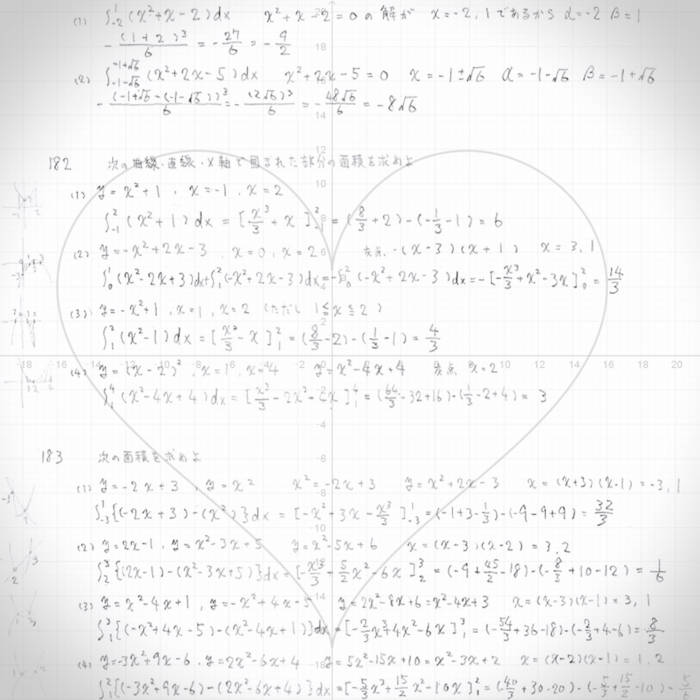 (1) ∫₋₂¹ (x²+x-2)dx x²+x-2=0 の解が x=-2, 1であるから α=-2 β=1
-(1+2)³/6 = -27/6 = -9/2
(2) ∫₋₁₋√6^-1+√6 (x²+2x-5)dx x²+2x-5=0 x=-1±√6 α=-1-√6 β=-1+√6
-(-1+√6-(-1-√6))³/6 = -(2√6)³/6 = -48√6/6 = -8√6
182 次の曲線・直線・x軸で囲まれた部分の面積を求めよ
(1) y=x²+1, x=-1, x=2
∫₋₁² (x²+1)dx = [x³/3+x]₋₁² = (8/3+2)-(-1/3-1) = 6
(2) y=-x²+2x-3, x=0, x=2 -(x-3)(x+1) x=3, 1
∫₀¹(x²-2x+3)dx+∫₁²(-x²+2x-3)dx=-∫₀²(-x²+2x-3)dx=-[-x³/3+x²-3x]₀²=14/3
(3) y=-x²+1, x=1, x=2 (ただし 1≦x≦2)
∫₁²(x²-1)dx = [x³/3-x]₁² = (8/3-2)-(1/3-1) = 4/3
(4) y=(x-2)², x=1, x=4 y=x²-4x+4 x=2
∫₁⁴(x²-4x+4)dx = [x³/3-2x²+4x]₁⁴ = (64/3-32+16)-(1/3-2+4) = 3
183 次の面積を求めよ
(1) y=-2x+3, y=x² x²=-2x+3 y=x²+2x-3 x=(x+3)(x-1)=-3, 1
∫₋₃¹{(-2x+3)-(x²)}dx = [-x²+3x-x³/3]₋₃¹ = (-1+3-1/3)-(-9-9+9) = 32/3
(2) y=2x-1, y=x²-3x+5 y=x²-5x+6 x=(x-3)(x-2)=3, 2
∫₂³{(2x-1)-(x²-3x+5)}dx=[-x³/3+5/2x²-6x]₂³=(-9+45/2-18)-(-8/3+10-12)=1/6
(3) y=x²-4x+1, y=-x²+4x-5 y=2x²-8x+6=x²-4x+3 x=(x-3)(x-1)=3, 1
∫₁³{(-x²+4x-5)-(x²-4x+1)}dx=[-2/3x³+4x²-6x]₁³=(-54/3+36-18)-(-2/3+4-6)=8/3
(4) y=-3x²+9x-6, y=2x²-6x+4 y=5x²-15x+10=x²-3x+2 x=(x-2)(x-1)=1, 2
∫₁²{(-3x²+9x-6)-(2x²-6x+4)}dx=[-5/3x³+15/2x²-10x]₁²